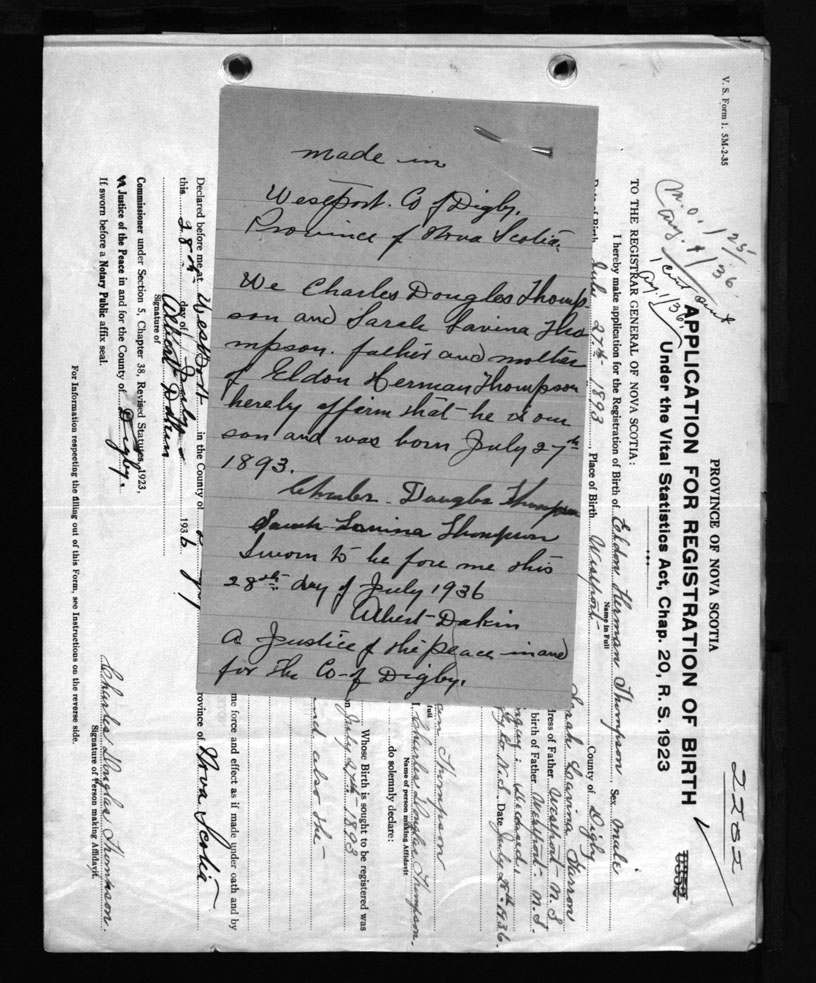 made in
Westport. Co of Digby.
Province of Nova Scotia.
We Charles Douglas Thomp
son and Sarah Lavina Tho
mpson. father and mother
of Eldon Herman Thompson
hereby affirm that he is our
son and was born July 27th
1893.
Charles Douglas Thompson
Sarah Lavina Thompson
Sworn to be fore me this
28th day of July 1936
Albert Dakin
A Justice of the peace in and
for the Co of Digby.
V. S. Form 1. 5M-2-35
2202
PROVINCE OF NOVA SCOTIA
APPLICATION FOR REGISTRATION OF BIRTH
Under the Vital Statistics Act, Chap. 20, R. S. 1923
TO THE REGISTRAR GENERAL OF NOVA SCOTIA:
I hereby make application for the Registration of Birth of Eldon Herman Thompson Sex Male
Name in Full
Date of Birth July 27th 1893, Place of Birth Westport County of Digby
Sarah Lavina
dress of Father Westport N.S.
birth of Father Westport. N.S.
N.S. Date July 28th 1936.
Thompson
full
I, Charles Douglas Thompson,
Name of person making Affidavit
do solemnly declare:
Whose Birth is sought to be registered was
on July 27th 1893
and also the
me force and effect as if made under oath and by
Declared before me at Westport in the County of Digby Province of Nova Scotia
this 28th day of July 1936
Albert Dakin
Signature of
Commissioner under Section 5, Chapter 38, Revised Statutes, 1923,
Justice of the Peace in and for the County of Digby.
If sworn before a Notary Public affix seal.
Charles Douglas Thompson.
Signature of Person making Affidavit.
For Information respecting the filling out of this Form, see Instructions on the reverse side.